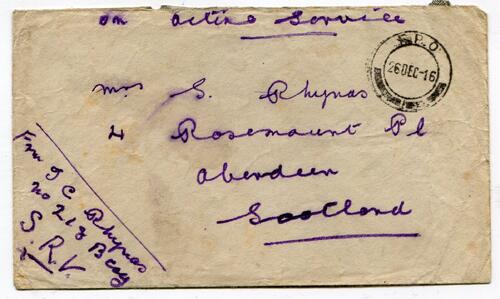 on Active Service
F.P.O
26 DEC -16
Mrs G. Rhynas
4 Rosemount Pl
Aberdeen
Scotland
From J C Rhynas
no 2163 Bay
S.R.V.